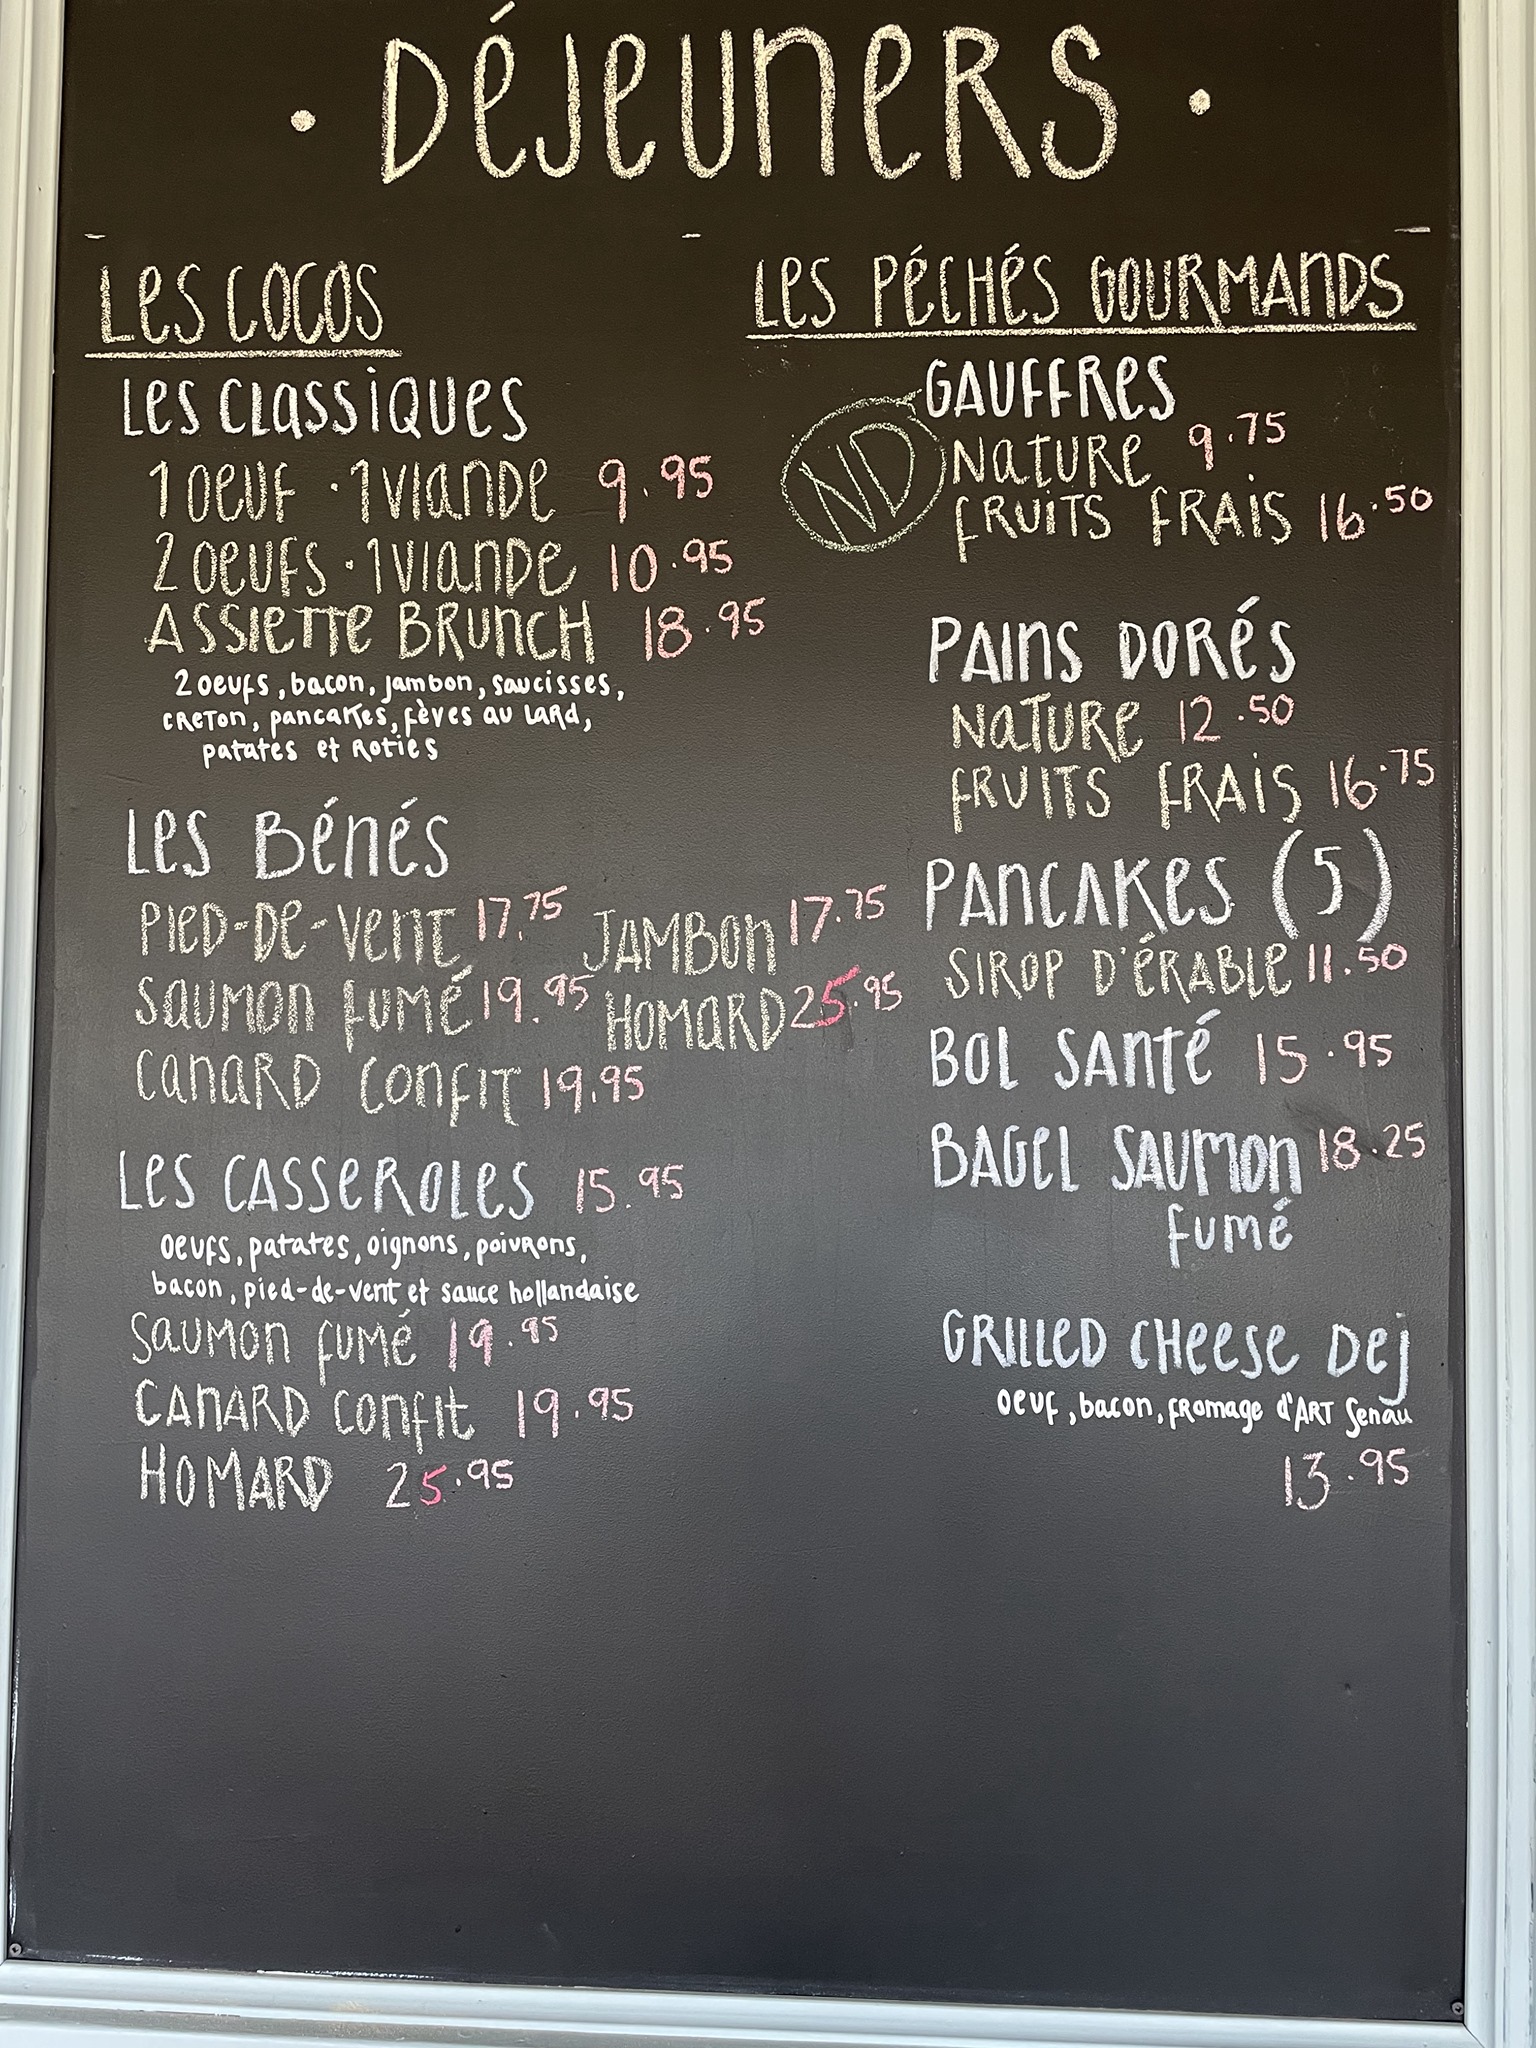 • DÉJEUNERS •
LES COCOS
LES CLASSIQUES
1 OEUF • 1 VIANDE 9.95
2 OEUFS • 1 VIANDE 10.95
ASSIETTE BRUNCH 18.95
2 oeufs, bacon, jambon, saucisses,
creton, pancakes, fèves au lard,
patates et roties
LES BÉNÉS
PIED-DE-VENT 17.75 JAMBON 17.75
SAUMON FUMÉ 19.95 HOMARD 25.95
CANARD CONFIT 19.95
LES CASSEROLES 15.95
oeufs, patates, oignons, poivrons,
bacon, pied-de-vent et sauce hollandaise
SAUMON FUMÉ 19.95
CANARD CONFIT 19.95
HOMARD 25.95
LES PÉCHÉS GOURMANDS
GAUFFRES
ND
NATURE 9.75
FRUITS FRAIS 16.50
PAINS DORÉS
NATURE 12.50
FRUITS FRAIS 16.75
PANCAKES (5)
SIROP D'ÉRABLE 11.50
BOL SANTÉ 15.95
BAGEL SAUMON 18.25
FUMÉ
GRILLED CHEESE DEJ
oeuf, bacon, fromage d'ART Senau
13.95